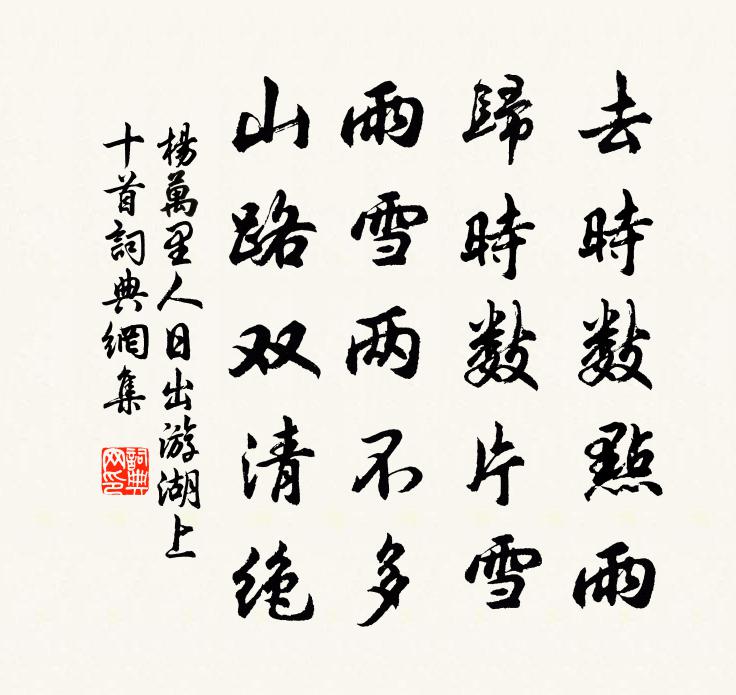 去時數點雨
歸時數片雪
雨雪两不多
山路双清绝
楊萬里人日出游湖上
十首詞典網集
詞典
网印